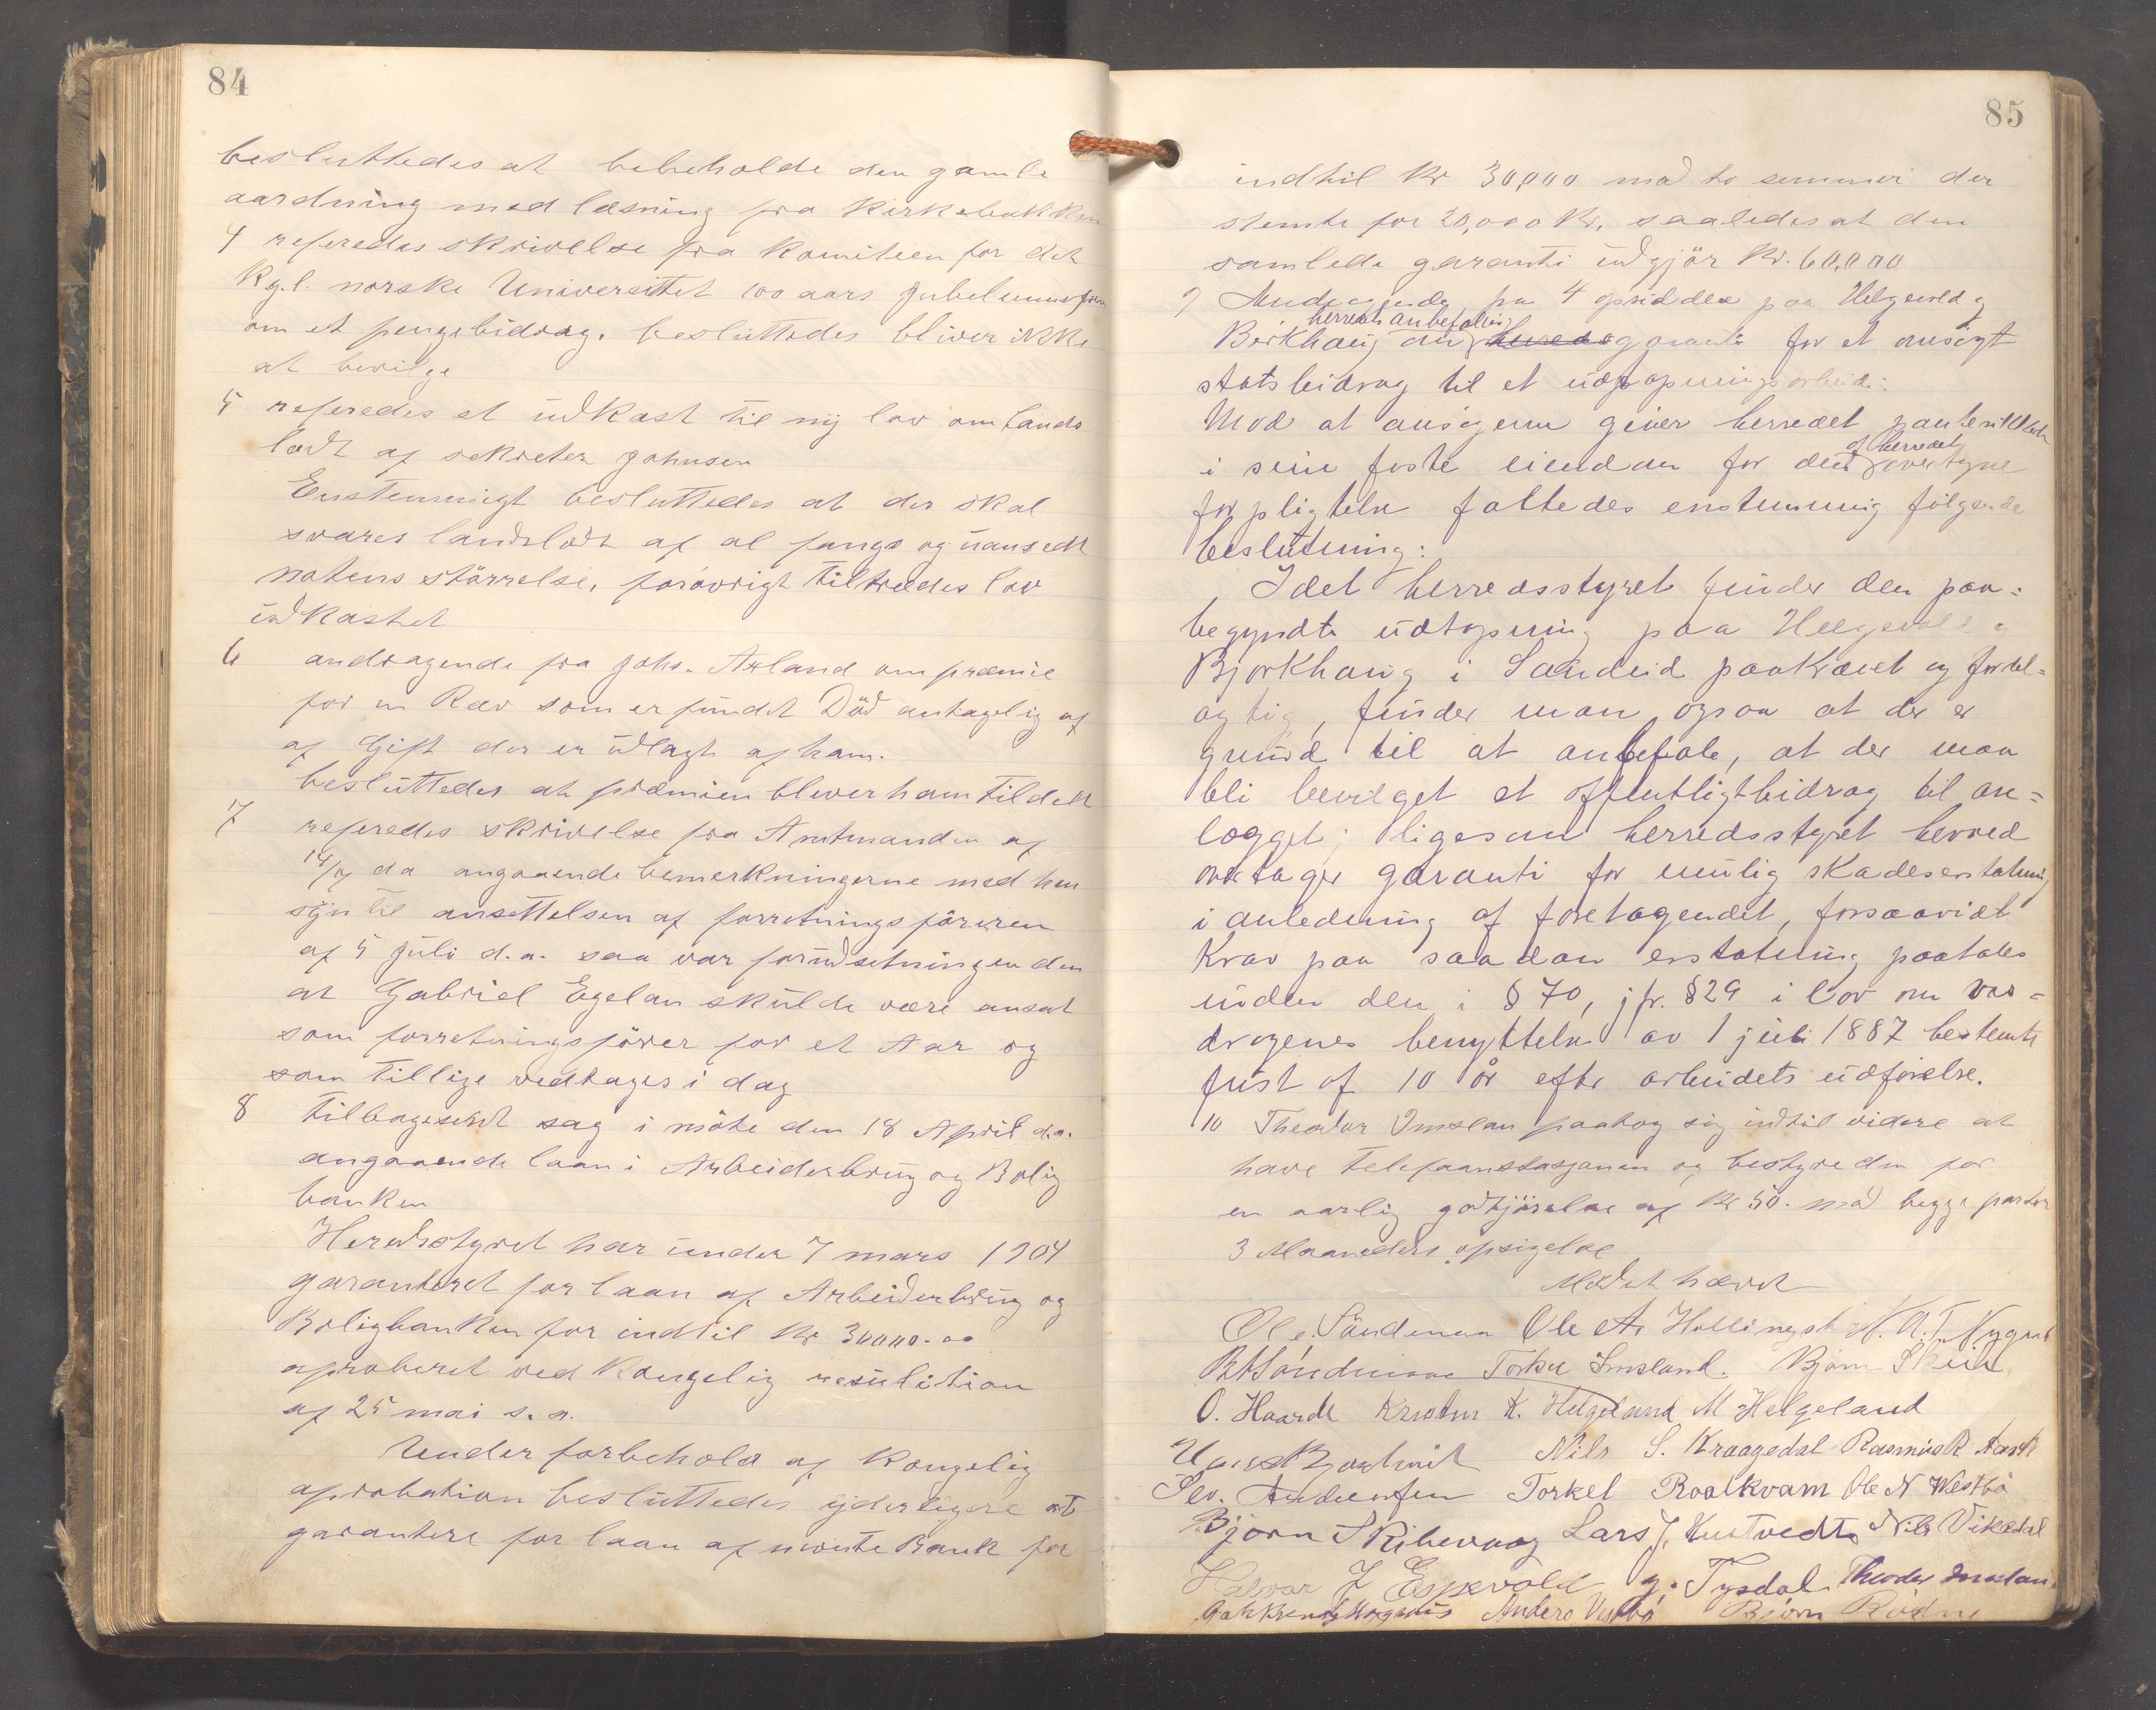 84
besluttedes at bebeholde den gamle
aardning med læsning fra Kirkebakken
4 referedes skrivelse fra Komiteen for det
Kg.l. norske Universitet 100 aars Jubeleums
om et pengebidrag. besluttedes bliver ikke
at bevilge
5 referedes et udkast til nÿ lov om lands
lodt af sekretær Johnsen
Enstemmigt besluttedes at der skal
svares landslodt af al fangs og uansedt
notens störrelse, foravrigt tiltrædes lov
udkastet
6 andragende fra Johs. Arland om præmie
for en Ræv som er fundet Död antagelig af
af Gift der er udlagt af ham.
besluttedes at præmien bliver ham tildelt
7 referedes skrivelse fra Amtmanden af
14/7 da angaaende bemerkningerne med hen
sÿn til ansettelsen af forretningsföreren
af 5 Juli d.a. saa var forudsetningen den
at Gabriel Egelan skulde være ansat
som forretningsförer for et Aar og
som tillige vedtages i dag
8 Tilbagesendt sag i möte den 18 April d.a.
angaaende laan i Arbeiderbrug og Bolig
banken
Heredsstyret har under 7 mars 1904
garanteret for laan af Arbeiderbrug og
Boligbanken for indtil Kr 30000.00
aproberet ved Kongelig resulition
af 25 mai s.a.
Under forbehold af Kongelig
aprobation besluttedes ÿderligere at
garantere for laan af nevnte Bank for
85
indtil Kr 30,000 mod to stemmer der
stemte for 20,000 Kr, saaledes at den
samlede garanti udgjör Kr. 60,000
9 Andragende fra 4 opsiddere paa Helgevold og
herreds anbefaling
Bërkhaug om herreds garanti for et ansögt
statsbidrag til et udtapningsarbeide:
Mod at ansögerne giver herredet panterett
af herredet
i sine faste eiendom for den overtagne
forpligtelse fattedes enstemmig fölgende
beslutning:
Idet herredsstyret finder den paa=
begyndte udtapning paa Helgevold og
Bjorkhaug i Sandeid paakrævet og fordel=
agtig, finder man ogsaa at der er
grund til at anbefale, at der maa
bli bevilget et offentligt bidrag til an=
lægget; ligesom herredsstyret herved
overtager garanti for mulig skadeserstatning
i anledning af foretagendet, forsaavidt
Krav paa saadan erstatning paatales
inden den i § 70, jfr. § 29 i lov om vas=
dragenes benyttelse av 1 juli 1887 bestemte
frist af 10 år efter arbeidets udförelse.
10 Theodor Imslan paatog sig indtil videre at
have Telefaanstasjonen og bestyre den for
en aarlig godtjörelse af Kr 50. mod begge parter
3 Maaneders opsigelse
Mödet hævet
Ole Sandeman Ole A. N. A. T. Nygaard
Torkel Imsland. Bjørn
O. Haarde Kristen K. Helgeland M Helgeland
Nils S. Kraagedal Rasmus R
Sev. Andersen Torkel Roalkvam Ole N Westbö
Bjørn Skibevaag Lars J. Nils Vikedal
Halvar J Espevold G. Tysdal Theodor Imslan.
Anders Vestbö Bjørn Rödne